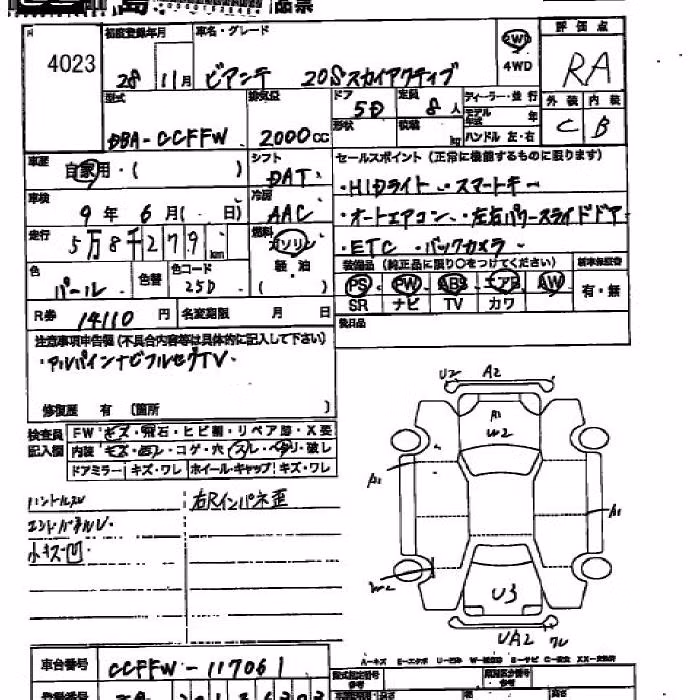 品票
4023
初度登録年月
車名・グレード
28 11月
ビアンテ 20Sスカイアクティブ
2WD
4WD
評価点
RA
型式
DBA-CCFFW
排気量
2000cc
ドア
5D
定員
8人
形状
積載
kg
ディーラー・並行
モデル年式
年
ハンドル 左・右
外装
内装
C
B
車歴
自家用・( )
シフト
DAT
車検
9年 6月( 日)
冷房
AAC
走行
5万8千279km
燃料
ガソリン
軽油
( )
色
パール
色替
色コード
25D
セールスポイント(正常に機能するものに限ります)
・HIDライト ・スマートキー
・オートエアコン ・左右パワースライドドア
・ETC ・バックカメラ
装備品(純正品に限り○をつけてください)
新車保証書
PS PW ABS エアB AW
SR ナビ TV カワ
有・無
後日品
R券 14110円
名変期限 月 日
注意事項申告欄(不具合内容等は具体的に記入して下さい)
・アルパインナビフルセグTV・
修復歴 有 (箇所
検査員
記入欄
FW キズ・飛石・ヒビ割・リペア跡・X要
内装 キズ・コゲ・穴・スレ・ヘタリ・破し
ドアミラー キズ・ワレ ホイール・キャップ キズ・ワレ
ハンドルスレ
右Rインパネ歪
エンドパネルU
小キズ凹
U2 A2
A1
W2
A1
A1
W2
U3
UA2 ワレ
車台番号
CCFFW-117061
登録番号